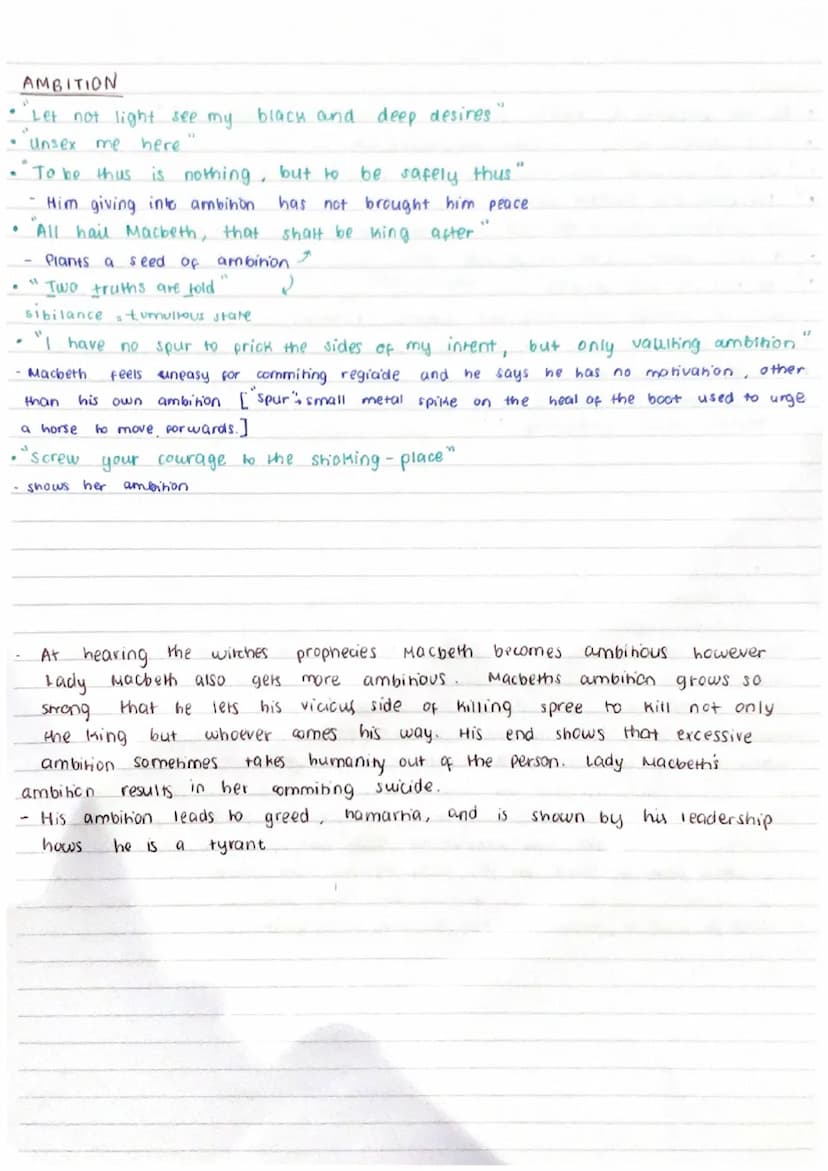 AMBITION
• "Let not light see my black and deep desires"
• "Unsex me here"
• "To be thus is nothing, but to be safely thus"
- Him giving into ambition has not brought him peace
• "All hail Macbeth, that shalt be king after"
- Plants a seed of ambition
• "Two truths are told"
sibilance, tumultous state
• "I have no spur to prick the sides of my intent, but only vaulting ambition"
- Macbeth feels uneasy for commiting regicide and he says he has no motivation, other
than his own ambition ["spur"→small metal spike on the heal of the boot used to urge
a horse to move forwards.]
• "Screw your courage to the sticking-place"
- shows her ambition
- At hearing the witches prophecies Macbeth becomes ambitious however
Lady Macbeth also gets more ambitious. Macbeths ambition grows so
strong that he lets his vicicus side of killing spree to kill not only
the king but whoever comes his way. His end shows that excessive
ambition sometimes takes humanity out of the person. Lady Macbeth's
ambition results in her commiting suicide.
- His ambition leads to greed, hamartia, and is shown by his leadership
hows he is a tyrant